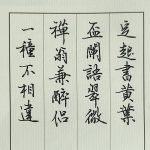 定起書黃葉
盃闌語翠微
禪翁兼醉侶
一種不相違